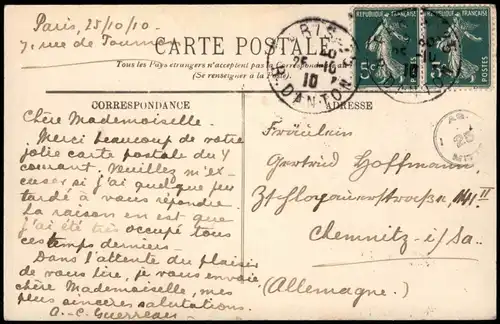 Paris, 25/10/10
7, rue de Tournon
CARTE POSTALE
Tous les Pays étrangers n'acceptent pas la Correspondance
(Se renseigner à la Poste).
CORRESPONDANCE
Chère Mademoiselle.
Merci beaucoup de votre
jolie carte postale du 4
courant. Veuillez m'ex-
cuser si j'ai quelque peu
tardé à vous répondre.
La raison en est que
j'ai été très occupé tous
ces temps derniers.
Dans l'attente du plaisir
de vous lire, je vous envoie,
chère Mademoiselle, mes
plus sincères salutations.
A.-C. Guerreau
ADRESSE
Fräulein
Gertrud Hoffmann,
Chemnitz-i/Sa.
(Allemagne.)
REPUBLIQUE FRANÇAISE
REPUBLIQUE FRANÇAISE
5c
5
PARIS
25-10
10
R. DANTON
25